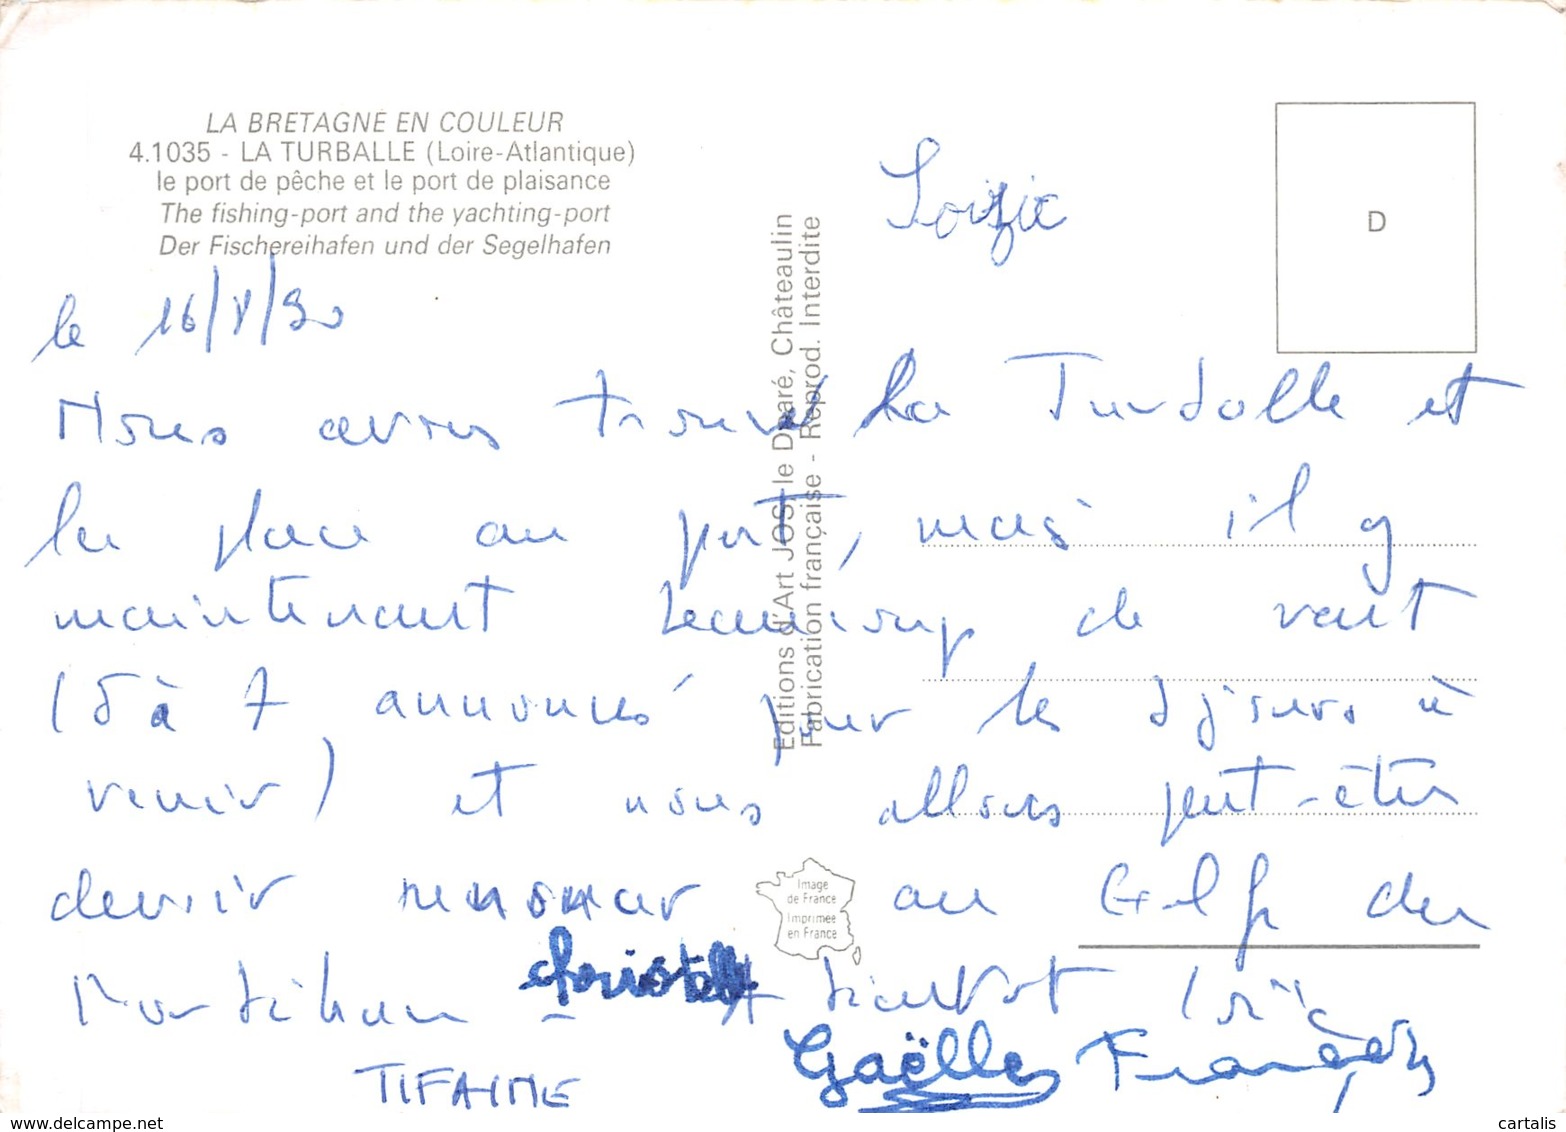 LA BRETAGNE EN COULEUR
4.1035 - LA TURBALLE (Loire-Atlantique)
le port de pêche et le port de plaisance
The fishing-port and the yachting-port
Der Fischereihafen und der Segelhafen
D
Editions d'Art JOS le Doaré, Châteaulin
Fabrication française - Reprod. Interdite
le 16/8/90
Nous avons trouvé La Turballe et
la place au port, mais il y
maintenant beaucoup de vent
(5 à 7 annoncés pour les 3 jours à
venir) et nous allons peut-être
devoir renoncer au Golfe du
Morbihan - A bientôt Loïc
Image
de France
Imprimée
en France
christelle
Gaëlle
TIFAINE
www.delcampe.net
cartalis